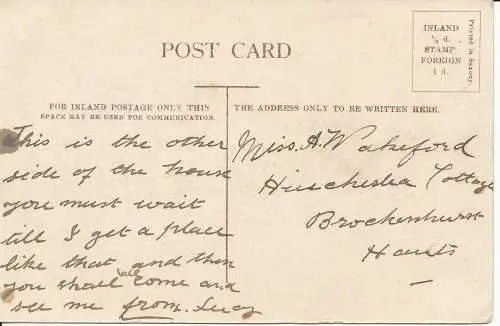 POST CARD
INLAND
½ d.
STAMP
FOREIGN
1 d.
Printed in Saxony.
FOR INLAND POSTAGE ONLY THIS
SPACE MAY BE USED FOR COMMUNICATION.
THE ADDRESS ONLY TO BE WRITTEN HERE.
This is the other
side of the house
you must wait
till I get a place
like that and then
you shall all come and
see me from. Lucy
Miss. A. Wakeford
Cottage
Brockenhurst
Hants